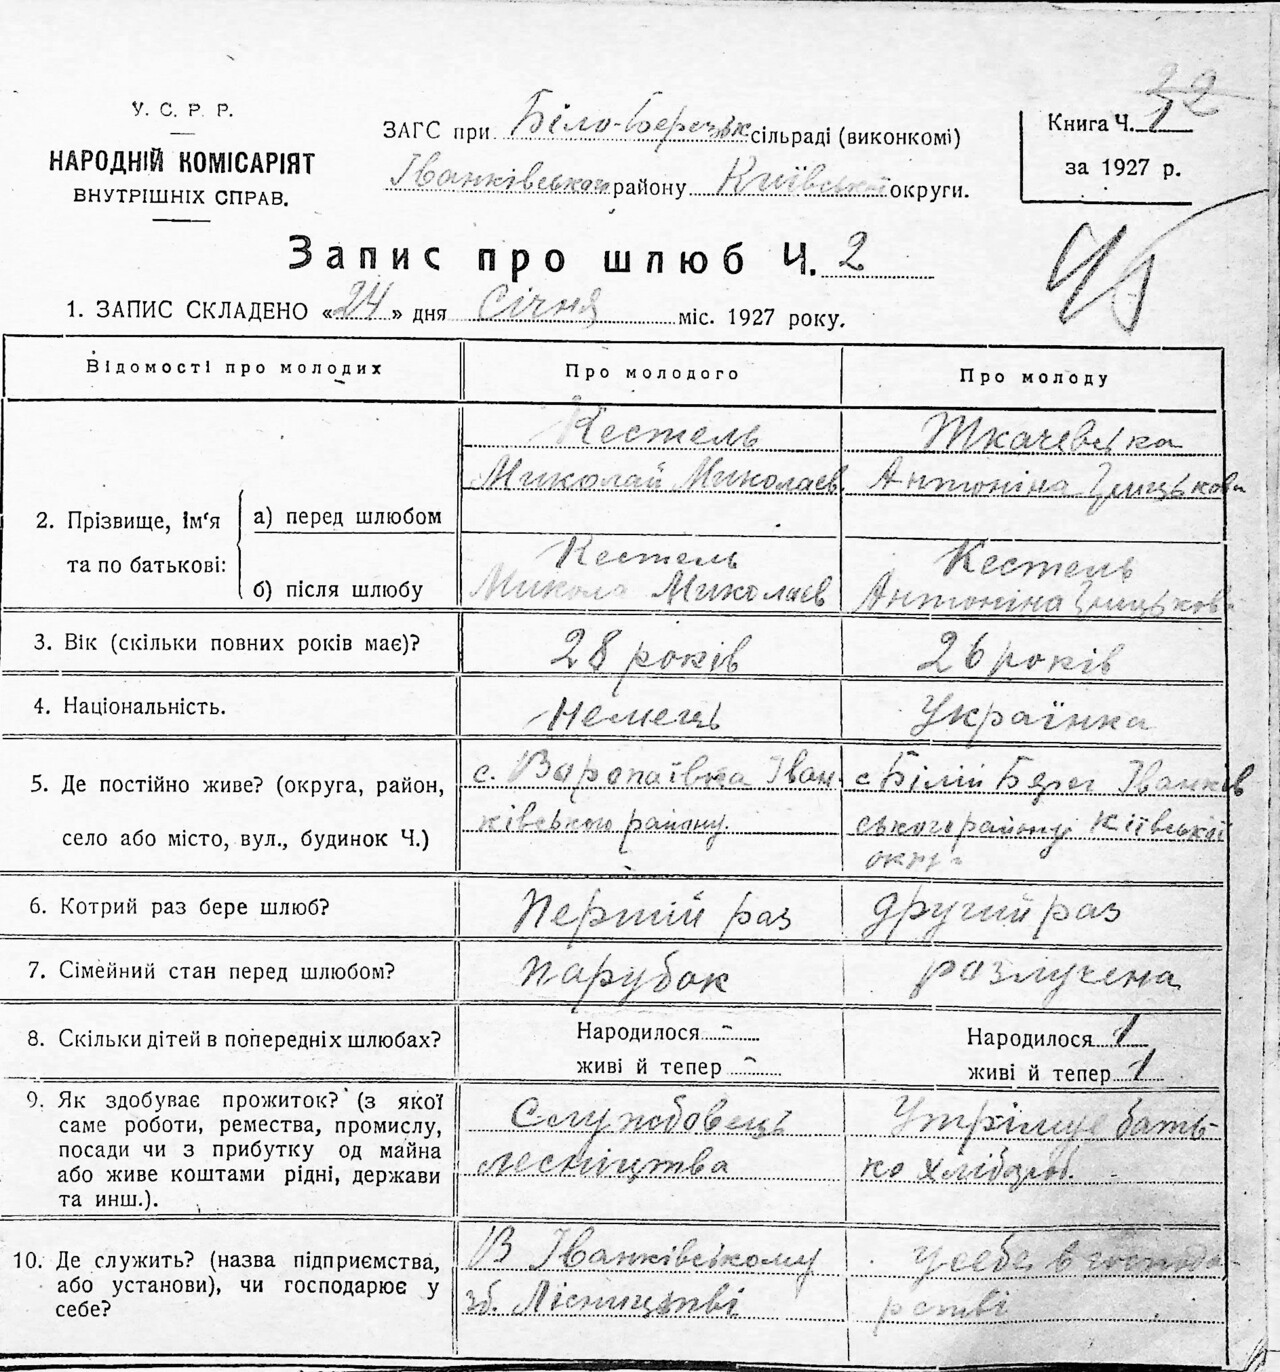 22
У. С. Р. Р.
НАРОДНІЙ КОМІСАРІЯТ
ВНУТРІШНІХ СПРАВ.
ЗАГС при Біло-Березьк сільраді (виконкомі)
Іванківської району Київської округи.
Книга Ч. 1
за 1927 р.
Запис про шлюб Ч. 2
1. ЗАПИС СКЛАДЕНО «24» дня Січня міс. 1927 року.
Відомості про молодих Про молодого Про молоду
2. Прізвище, ім'я та по батькові:
а) перед шлюбом
Кестель
Миколай Миколаєв.
Ткачевська
Антоніна Грицькова
б) після шлюбу
Кестель
Микола Миколаєв
Кестель
Антоніна Грицьков
3. Вік (скільки повних років має)? 28 років 26 років
4. Національність. Немець Українка
5. Де постійно живе? (округа, район,
село або місто, вул., будинок Ч.)
с. Воропаївка Іван-
ківського району.
с Білій Берег Іванків
ського району Київської
окру
6. Котрий раз бере шлюб? Перший раз другий раз
7. Сімейний стан перед шлюбом? Парубок разлучена
8. Скільки дітей в попередніх шлюбах?
Народилося -
живі й тепер -
Народилося 1
живі й тепер 1
9. Як здобуває прожиток? (з якої
саме роботи, ремества, промислу,
посади чи з прибутку од майна
або живе коштами рідні, держави
та инш.).
Службовець
лесніцтва
Утрімує бать-
ко хлібороб.
10. Де служить? (назва підприємства,
або установи), чи господарює у
себе?
В Іванківському
зб. Лісництві
у себе в господа-
рстві